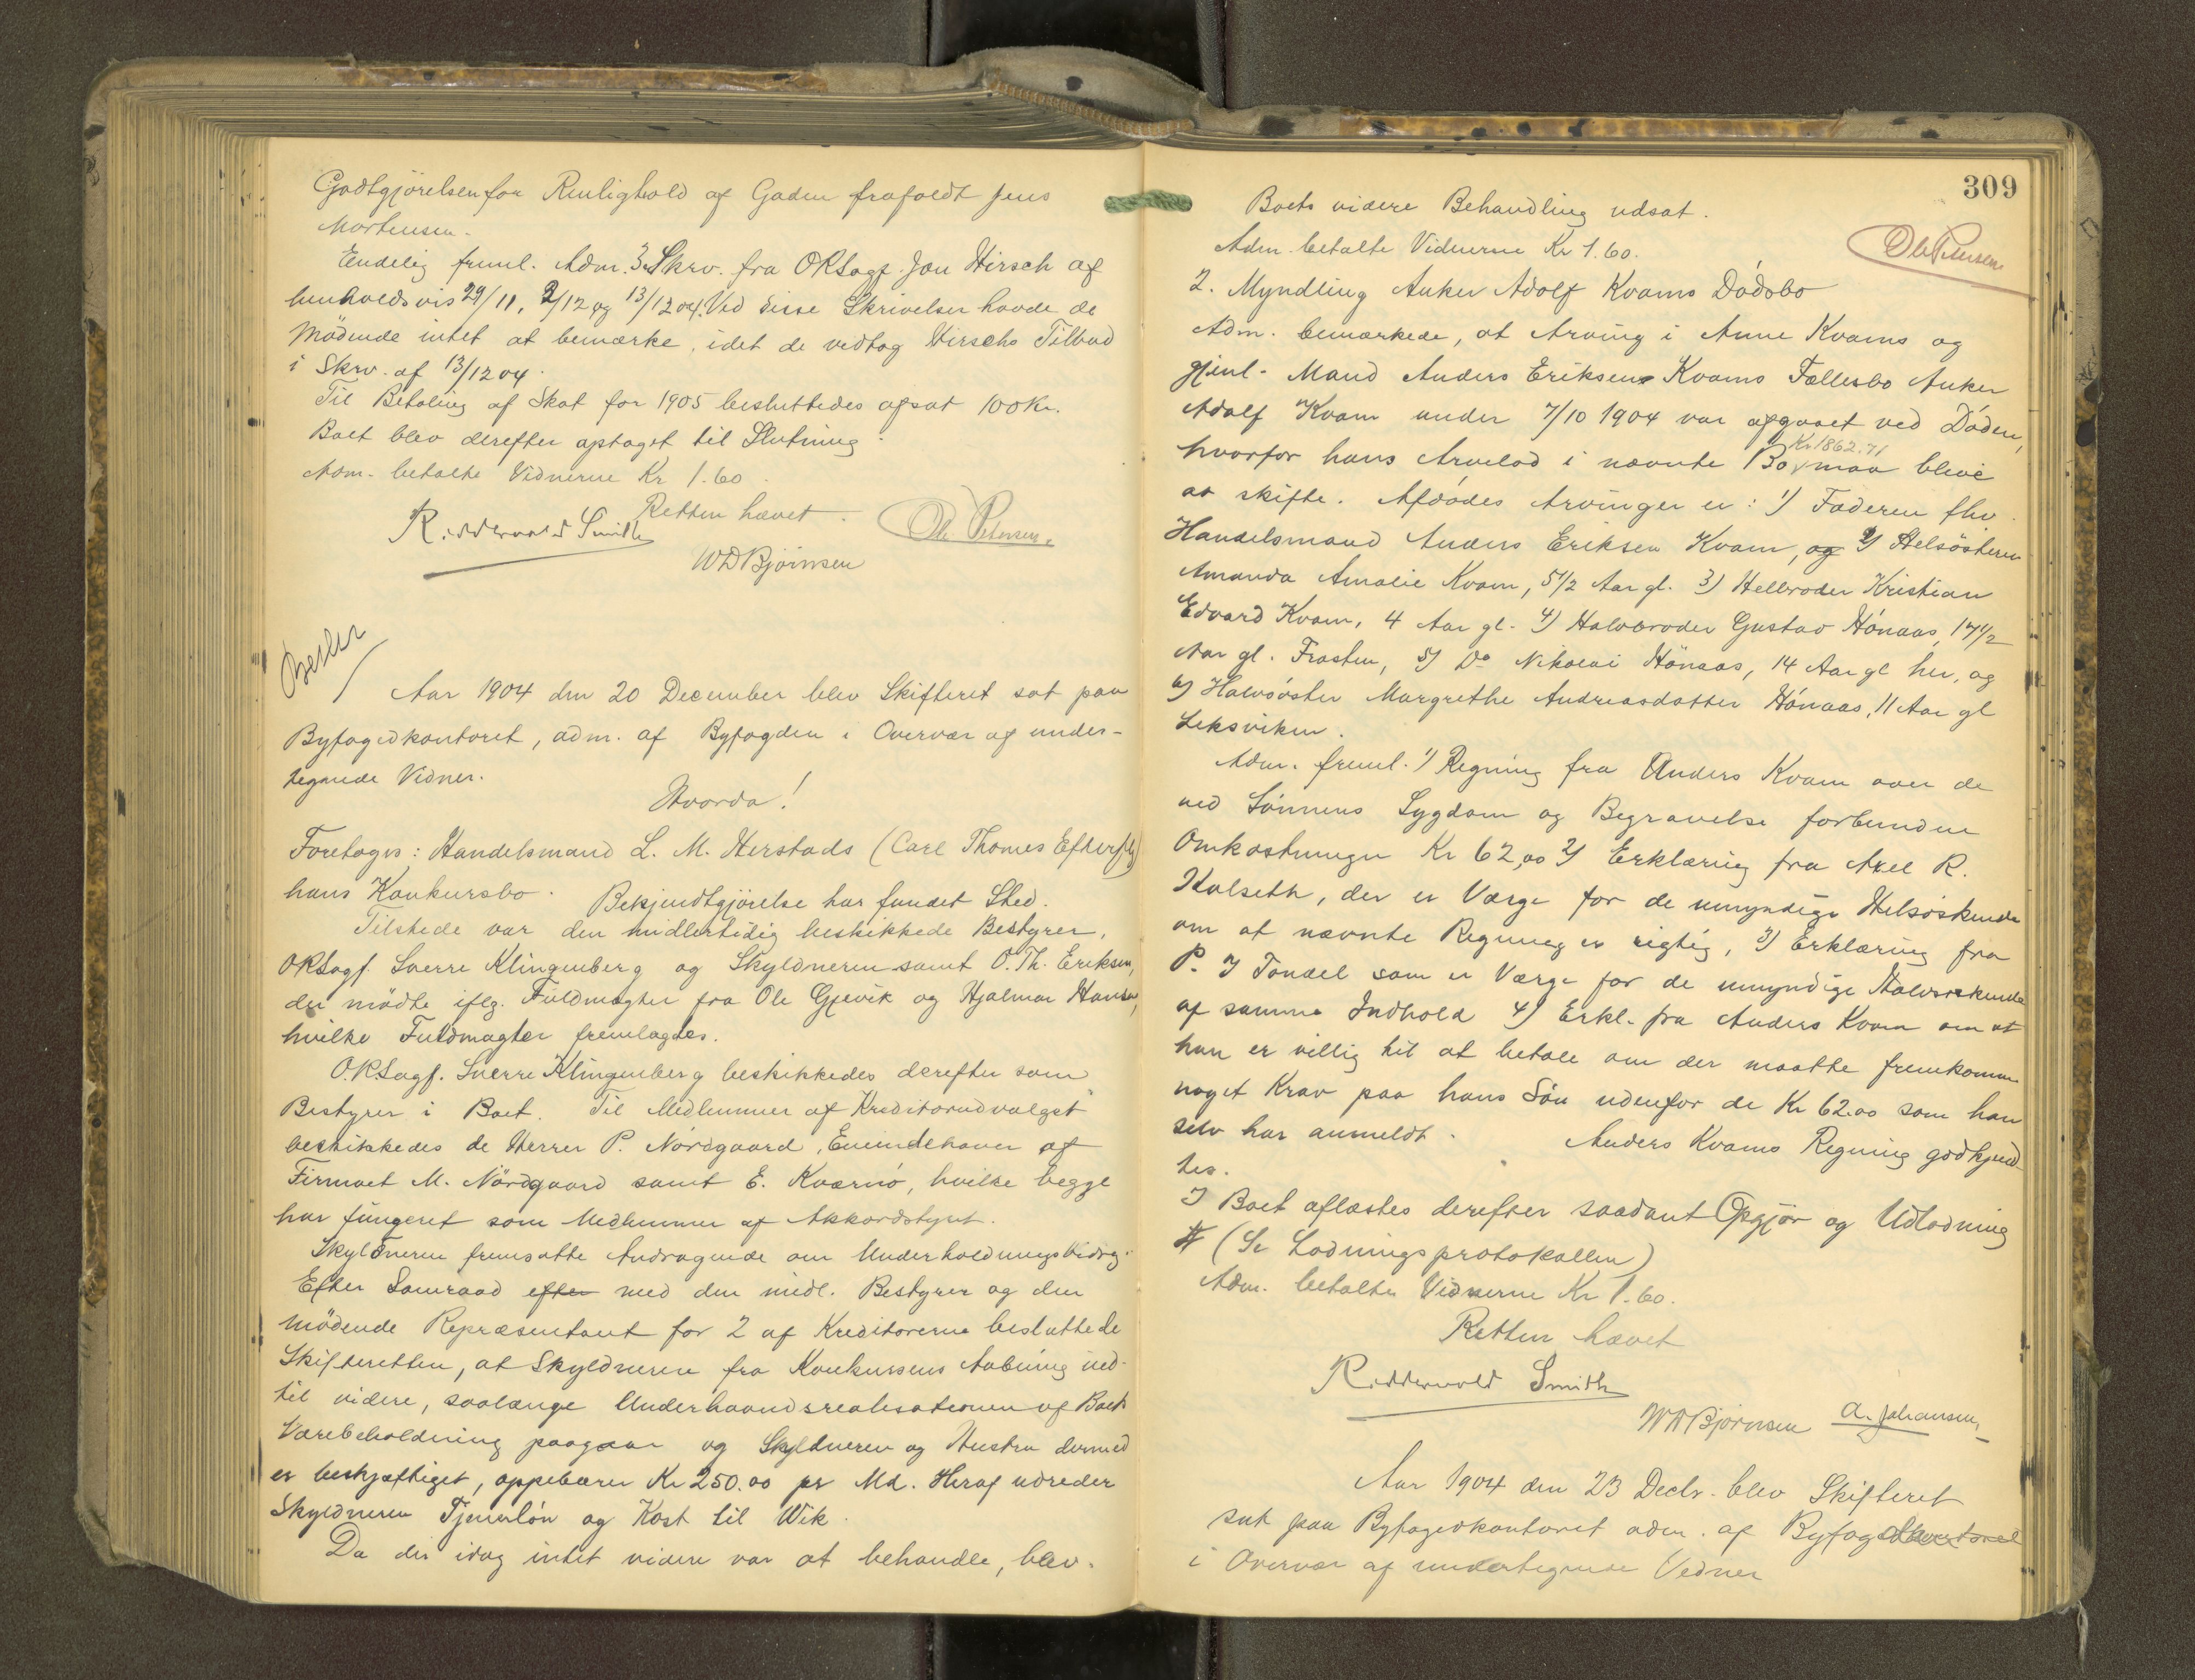 Godtgjörelsen for Renlighold af Gaden frafaldt Jens
Mortensen.
Endelig freml. Adm. 3 Skrv. fra ORSagf. Jon Hirsch af
henholdsvis 29/11, 2/12 og 13/12 04. Ved disse Skrivelser havde de
Mödende intet at bemærke, idet de vedtog Hirschs Tilbud
i Skrv. af 13/12 04.
Til Betaling af Skat for 1905 besluttedes afsat 100 Kr.
Boet blev derefter optaget til Slutning.
Adm. betalte Vidnerne Kr 1.60.
Retten hævet.
Ridderwold Smith
Ole Petersen.
WDBjörnsen
Aar 1904 den 20 December blev Skifteret sat paa
Byfogedkontoret, adm. af Byfogden i Overvær af under-
tegnede Vidner.
Hvorda!
Foretoges: Handelsmand L. M. Herstads (Carl Thomes Efterflg)
hans Konkursbo. Bekjendtgjörelse har fundet Sted.
Tilstede var den midlertidig beskikkede Bestyrer,
ORSagf. Sverre Klingenberg og Skyldneren samt O. Th. Eriksen,
der mödte iflg. Fuldmagter fra Ole Gjevik og Hjalmar Hansen,
hvilke Fuldmagter fremlagdes.
O.R.Sagf. Sverre Klingenberg beskikkedes derefter som
Bestyrer i Boet. Til Medlemmer af Kreditorudvalget
beskikkedes de Herrer P. Nördgaard, Eneindehaver af
Firmaet M. Nördgaard samt E. Kværnö, hvilke begge
har fungeret som Medlemmer af Akkordstyret.
Skyldneren fremsatte Andragende om Underholdningsbidrag.
Efter Samraad efter med den midl. Bestyrer og den
mödende Repræsentant for 2 af Kreditorerne besluttede
Skifteretten, at Skyldneren fra Konkursens Aabning ind-
til videre, saalænge Underhaandsrealisationen af Boets
Varebeholdning paagaar og Skyldneren og Hustru dermed
er beskjæftiget, oppebærer Kr 250.00 pr Md. Heraf udreder
Skyldneren Tjenerlön og Kost til Wik.
Da der idag intet videre var at behandle, blev
309
Boets videre Behandling udsat.
Adm. betalte Vidnerne Kr 1.60.
Ole Petersen
2. Myndling Anker Adolf Kvams Dödsbo
Adm. bemærkede, at Arving i Anne Kvams og
gjenl. Mand Anders Eriksens Kvams Fællesbo Anker
Adolf Kvam under 7/10 1904 var afgaaet ved Döden,
Kr 1862.71
hvorfor hans Arvelod i nævnte Bo maa blive
at skifte. Afdödes Arvinger er: 1) Faderen fhv.
Handelsmand Anders Eriksen Kvam, og 2) Helsösteren
Amanda Amalie Kvam, 5 1/2 Aar gl. 3) Helbroder Kristian
Edvard Kvam, 4 Aar gl. 4) Halvbroder Gustav Hönaas, 17 1/2
Aar gl. Frosten, 5) Do Nikolai Hönaas, 14 Aar gl her, og
6) Halvsöster Margrethe Andreasdatter Hönaas, 11 Aar gl
Leksviken.
Adm. freml. 1) Regning fra Anders Kvam over de
ved Sönnens Sygdom og Begravelse forbundne
Omkostninger Kr 62,00 2) Erklæring fra Axel R.
Kalseth, der er Værge for de umyndige Helsöskende
om at nævnte Regning er rigtig, 3) Erklæring fra
P. J Tondel som er Værge for de umyndige Halvsöskende
af samme Indhold 4) Erkl. fra Anders Kvam om at
han er villig til at betale om der maatte fremkomme
noget Krav paa hans Sön udenfor de Kr 62.00 som han
selv har anmeldt. Anders Kvams Regning godkjend-
tes.
I Boet aflæstes derefter saadant Opgjör og Udlodning
# (Se Lodningsprotokollen)
Adm. betalte Vidnerne Kr 1.60.
Retten hævet
Ridderwold Smith
WDBjörnsen A. Johansen
Aar 1904 den 23 Decbr. blev Skifteret
sat paa Byfogedkontoret adm. af Byfogd
i Overvær af undertegnede Vidner